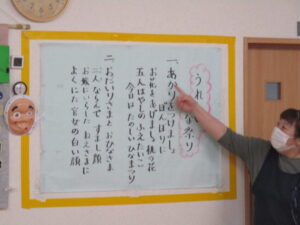 うれ な祭り
一、あかりをつけましょ
ぼんぼりに
お花をあげましょ 桃の花
五人ばやしの ふえたいこ
今日は たのしい ひなまつり
二、おだいりさまと おひなさま
二人ならんで すまし顔
お嫁にいらした ねえさまに
よくにた 官女の白い顔